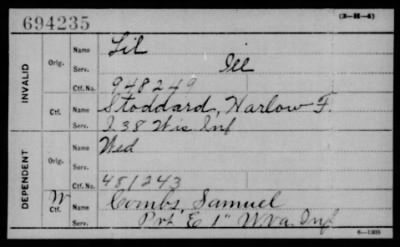 694235
(3-86-5)
INVALID
Orig.
Name Lil
Serv. Ill
Ctf. No. 948249
Ctf.
Name Stoddard, Harlow F.
Serv. I. 38 Wis Inf
DEPENDENT
Orig.
Name Wed
Serv.
Ctf. No. 481243
W Ctf.
Name Combs, Samuel
Serv. Pvt. E 1" W Va. Inf